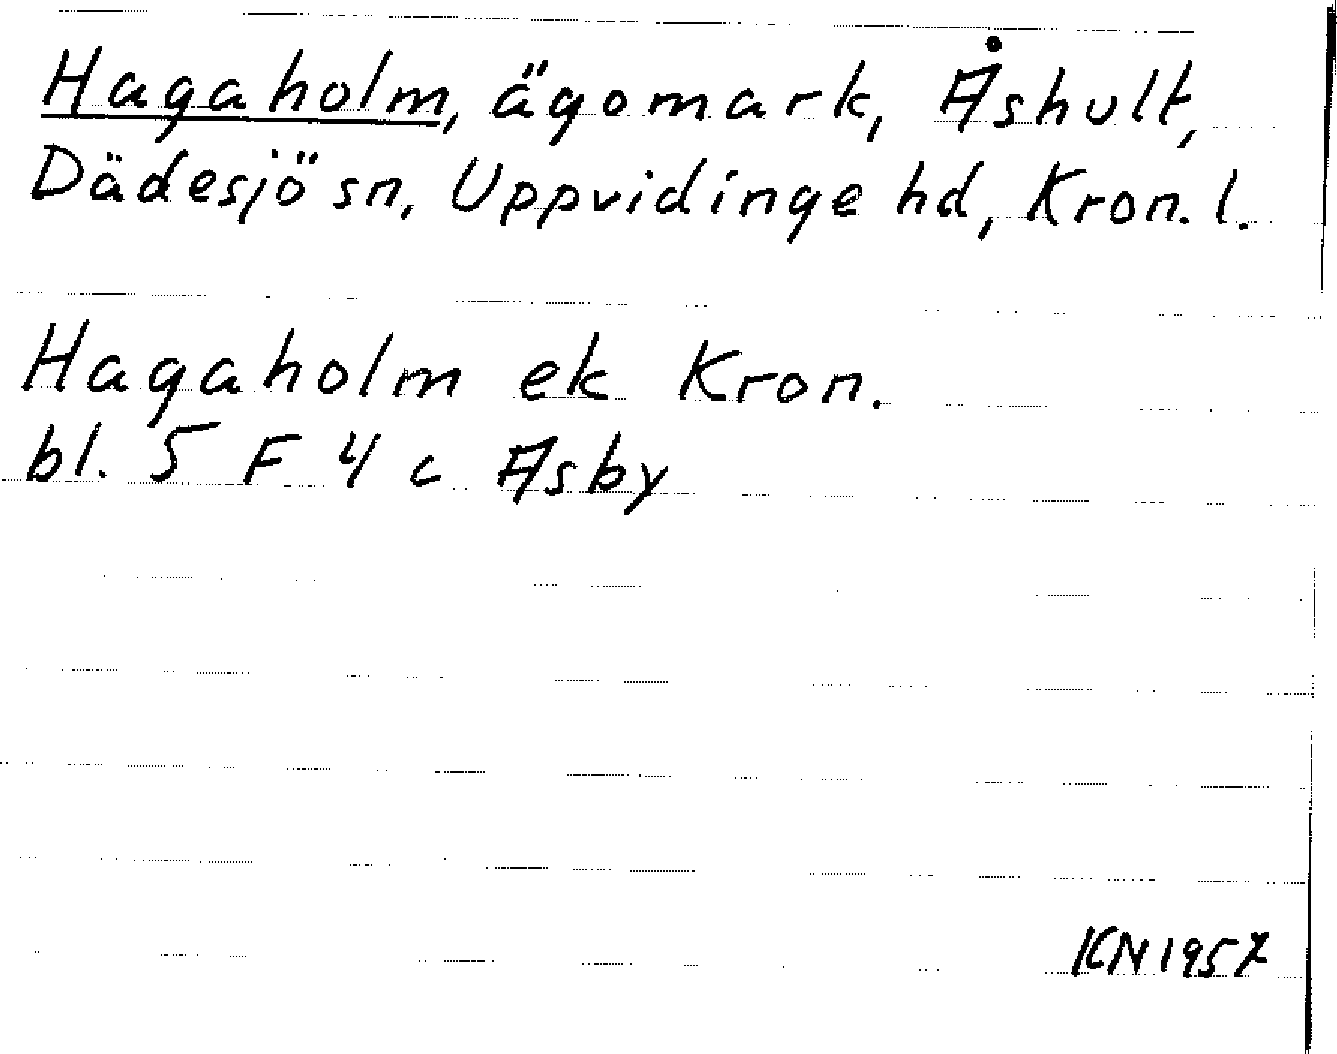 Hagaholm, ägomark, Åshult,
Dädesjö sn, Uppvidinge hd, Kron. l.
Hagaholm ek Kron.
bl. 5 F 4 c Asby
KN 1957